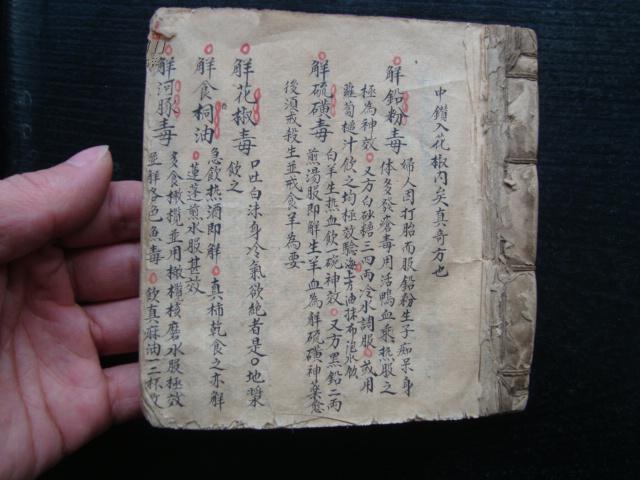 中鑽入花椒內矣真奇方也
解鉛粉毒
婦人因打胎而服鉛粉生子痴呆身
体多發瘡毒用活鴨血乘热服之
極為神效○又方白砂糖三四両冷水調服○或用
蘿蔔搥汁飲之均極效驗
解硫磺毒
白羊生热血飲一碗神效○又方黑鉛二両
煎湯服即解生羊血為解硫磺神藥愈
後須戒殺生並戒食羊為要
解花椒毒
口吐白沫身冷氣欲絕者是○地漿
飲之
解食桐油
急飲热酒即解○真柿乾食之亦解
○蓮蓬煎水服甚效
解河豚毒
多食橄欖並用橄欖核磨水服極效
並解各色魚毒○飲真麻油一二杯